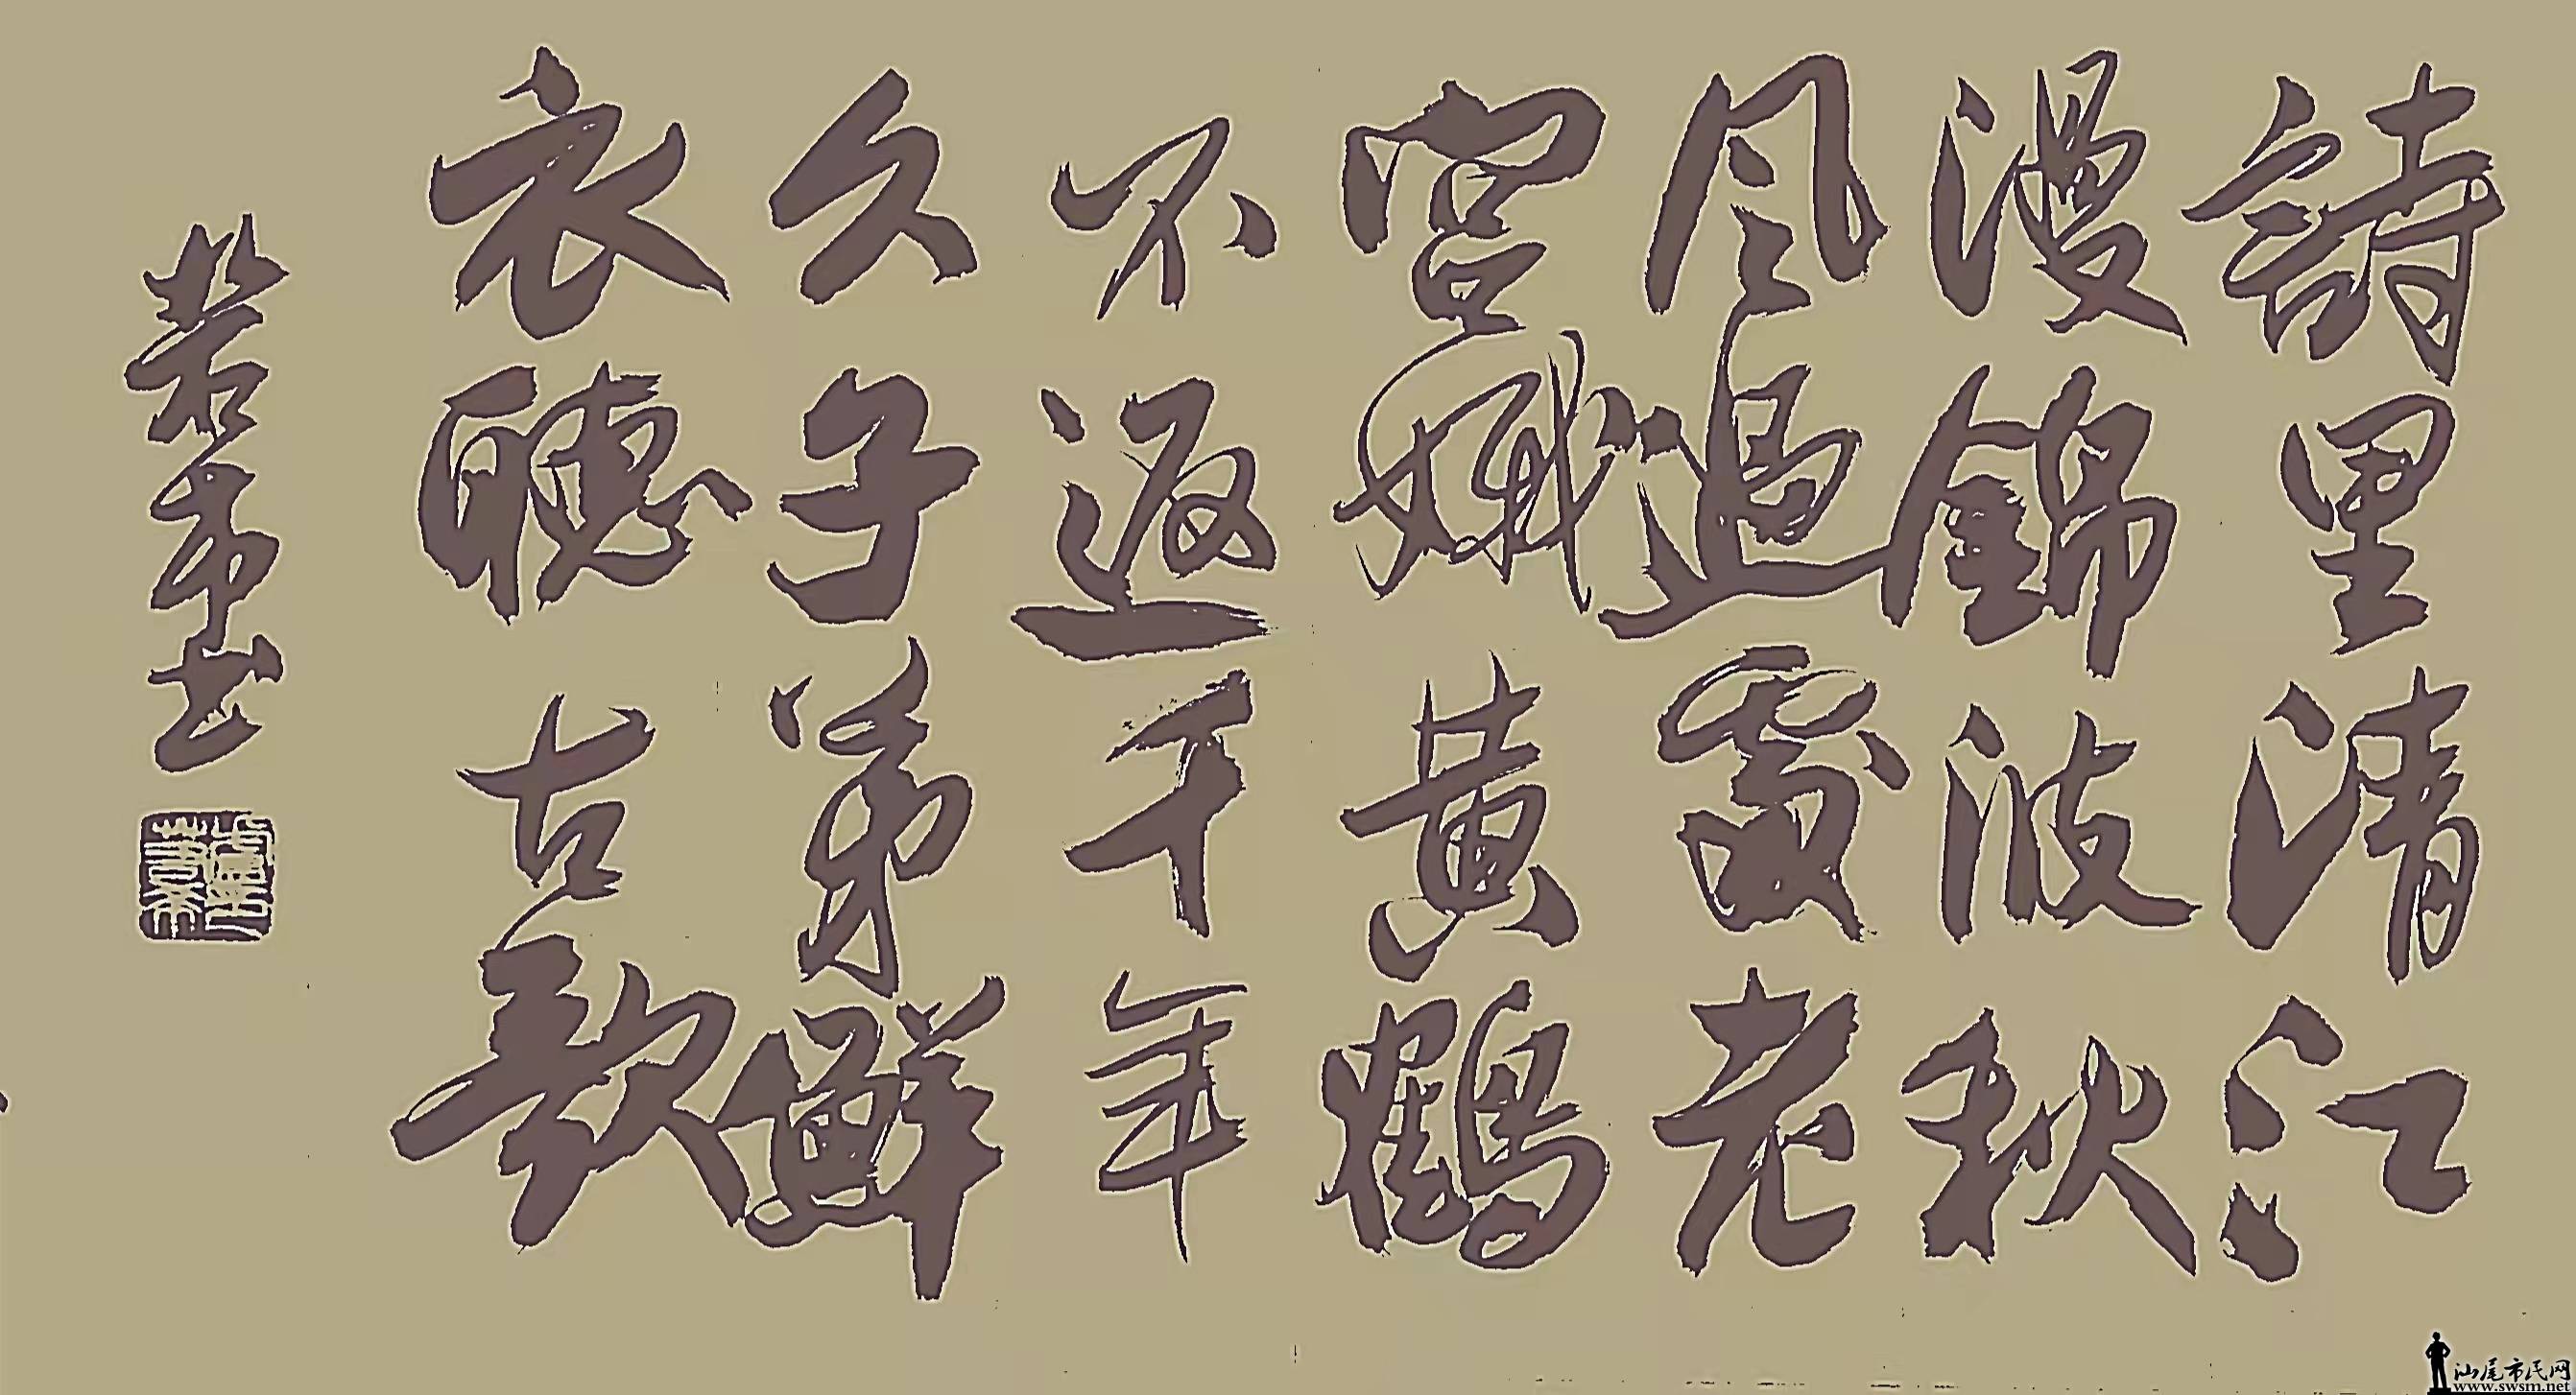 詩里清江
漫錦波秋
風過處老
宮娥黄鶴
不返千年
久子弟鮮
衣聽古歌
书
汕尾市民网
www.swsm.net